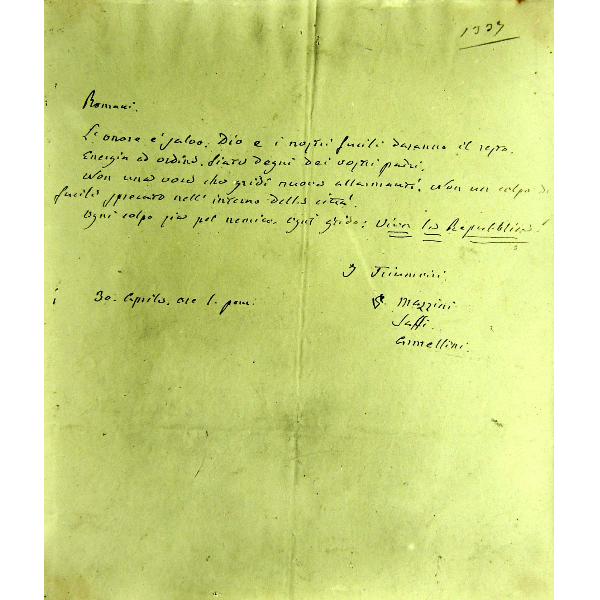 1337
Romani.
L'onore è salvo. Dio e i nostri fucili daranno il resto.
Energia ed ordine. Siate degni dei vostri padri.
Non una voce che gridi nuove allarmanti. Non un colpo di
fucile sprecato nell'interno della città!
Ogni colpo sia pel nemico. Ogni grido: Viva la Repubblica!
I Triumviri
30. Aprile, ore 1. pom.
G. Mazzini
Saffi.
Armellini.